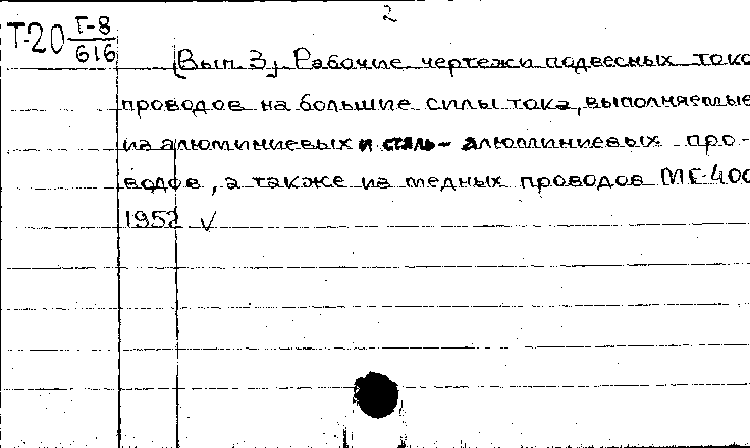 2
Т-20 Т-8
616
[Вып. 3]. Рабочие чертежи подвесных токо
проводов на большие силы тока, выполняемые
из алюминиевых и сталь-алюминиевых про-
водов, а также из медных проводов МГ-400
1952 V